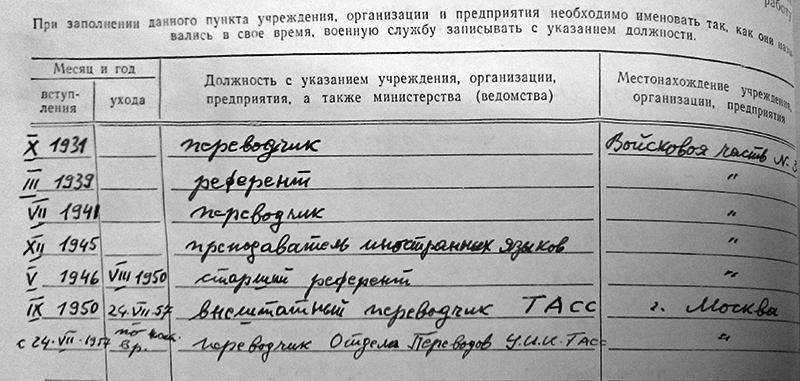 работу
При заполнении данного пункта учреждения, организации и предприятия необходимо именовать так, как они назы-
вались в свое время, военную службу записывать с указанием должности.
Месяц и год
вступ-
ления
ухода
Должность с указанием учреждения, организации,
предприятия, а также министерства (ведомства)
Местонахождение учреждения,
организации, предприятия
X 1931 переводчик Войсковая часть N. 3
III 1939 референт "
VII 1941 переводчик "
XII 1945 преподаватель иностранных языков "
V 1946 VIII 1950 старший референт "
IX 1950 24.VII.57 внештатный переводчик ТАСС г. Москва
с 24.VII.1957 по наст. вр. переводчик Отдела Переводов ТАСС "